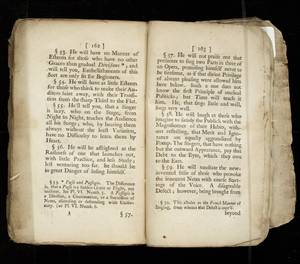 [ 162 ]
§ 53. He will have no Manner of
Esteem for those who have no other
Graces than gradual Divisions *; and
will tell you, Embellishments of this
Sort are only fit for Beginners.
§ 54. He will have as little Esteem
for those who think to make their Au-
ditors faint away, with their Transi-
tion from the sharp Third to the Flat.
§ 55. He'll tell you, that a Singer
is lazy, who on the Stage, from
Night to Night, teaches the Audience
all his Songs; who, by hearing them
always without the least Variation,
have no Difficulty to learn them by
Heart.
§ 56. He will be affrighted at the
Rashness of one that launches out,
with little Practice, and less Study,
lest venturing too far, he should be
in great Danger of losing himself.
§ 53. * Passi and Passages. The Difference
is, that a Passi is a sudden Grace or Flight, not
uniform. See Pl. VI. Numb. 5. A Passage is
a Division, a Continuation, or a Succession of
Notes, ascending or descending with Unifor-
mity. See Pl. VI. Numb. 6.
§ 57.
[ 163 ]
§ 57. He will not praise one that
presumes to sing two Parts in three of
an Opera, promising himself never to
be tiresome, as if that divine Privilege
of always pleasing were allowed him
here below. Such a one does not
know the first Principle of musical
Politicks; but Time will teach it
him. He, that sings little and well,
sings very well.
§ 58. He will laugh at those who
imagine to satisfy the Publick with the
Magnificence of their Habits, with-
out reflecting, that Merit and Igno-
rance are equally aggrandized by
Pomp. The Singers, that have nothing
but the outward Appearance, pay that
Debt to the Eyes, which they owe
to the Ears.
§ 59. He will nauseate the new-
invented Stile of those who provoke
the innocent Notes with coarse Start-
ings of the Voice. A disagreeable
Defect; however, being brought from
§ 59. This alludes to the French Manner of
Singing, from whence that Defect is
beyond